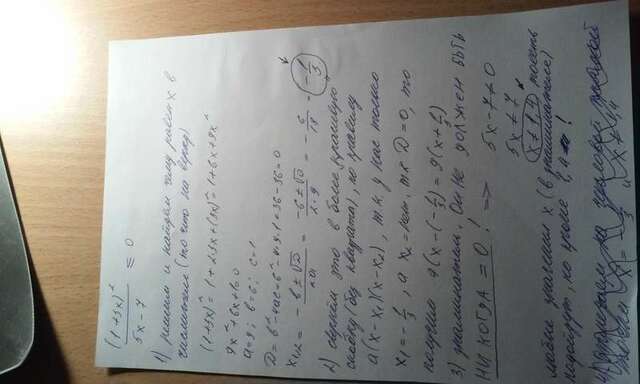 (1+3x)²
5x-7 ≤ 0
1) решим и найдем чему равен x в
числителе (то что на верху)
(1+3x)² = 1+2·3x+(3x)² = 1+6x+9x²
9x²+6x+1=0
a=9; b=6; c=1
D = b²-4ac = 6²-4·9·1 = 36-36=0
x₁,₂ = -b±√D / 2a = -6±√0 / 2·9 = -6/18 = -1/3
2) свернём это в более красивую
скобку (без квадрата), по правилу
a(x-x₁)(x-x₂), т.к. у нас только
x₁=-1/3, а x₂=нет. т.к D=0, то
получим 9(x-(-1/3)=9(x+1/3)
3) знаминатель. Он НЕ ДОЛЖЕН БЫТЬ
НИКОГДА = 0! =>
5x-7≠0
5x≠7
x≠1,4 тоесть
любые значения x (в знаминателе)
подойдут, но кроме 1,4!
4) на числовой прямой
точки x=-1/3 и x≠1,4